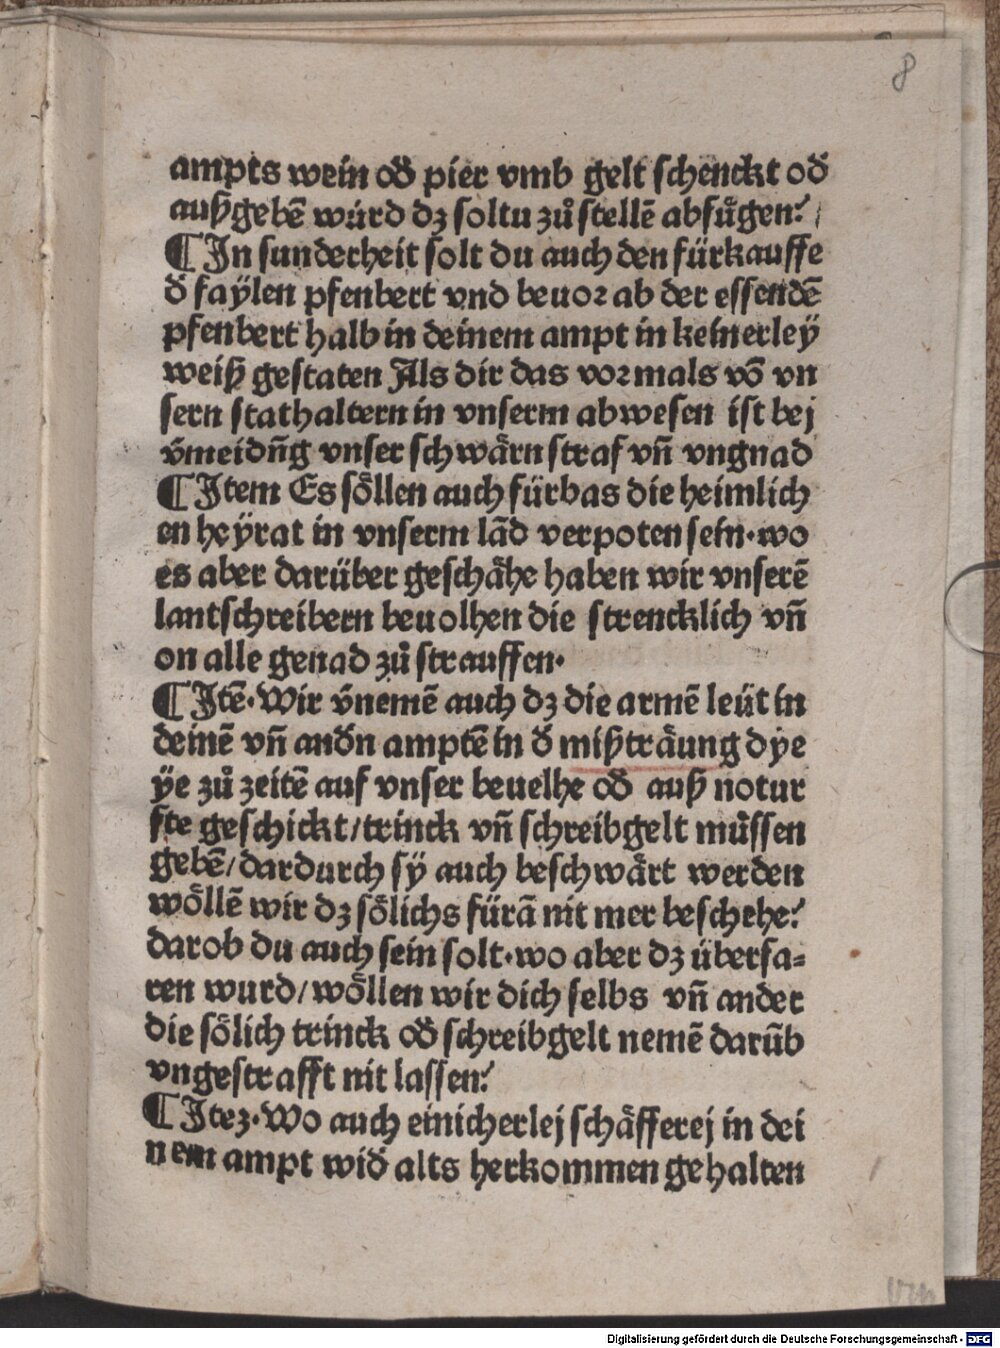 8
ampts wein od̄ pier vmb gelt schenckt od̄
außgebē wúrd dz soltu zů stellē abfůgen?
¶ In sunderheit solt du auch den fürkauffe
d̄ faÿlen pfenbert vnd beuoꝛ ab der essendē
pfenbert halb in deinem ampt in keinerleÿ
weiß gestaten Als dir das voꝛmals vō vn
sern stathaltern in vnserm abwesen ist bej
v̄meidn̄g vnser schwårn straf vn̄ vngnad
¶ Item Es söllen auch fürbas die heimlich
en heÿrat in vnserm lād verpoten sein·wo
es aber darüber geschåhe haben wir vnserē
lantschreibern beuolhen die strencklich vn̄
on alle genad zů strauffen·
¶ Itē·Wir v̄nemē auch dz die armē leüt in
deinē vn̄ and̄n amptē in d̄ mißträung dÿe
ÿe zů zeitē auf vnser beuelhe od̄ auß notur
fte geschickt/trinck vn̄ schreibgelt můssen
gebē/dardurch sÿ auch beschwårt werden
wöllē wir dz sölichs fürā nit mer beschehe?
darob du auch sein solt·wo aber dz überfa⸗
ren wurd/wöllen wir dich selbs vn̄ ander
die sölich trinck od̄ schreibgelt nemē darūb
vngestrafft nit lassen?
¶ Itez·Wo auch einicherlej schåfferej in dei
nem ampt wid̄ alts herkommen gehalten
Digitalisierung gefördert durch die Deutsche Forschungsgemeinschaft - DFG